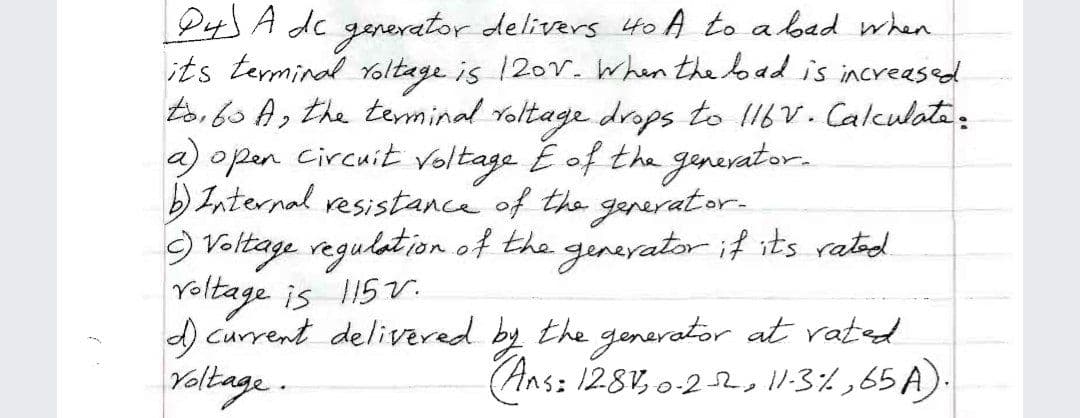 Q4) A dc generator delivers 40 A to a load when
its terminal voltage is 120V. When the load is increased
to, 60 A, the terminal voltage drops to 116 V. Calculate:
a) open circuit voltage E of the generator.
b) Internal resistance of the generator.
c) Voltage regulation of the generator if its rated
voltage is 115 V.
d) current delivered by the generator at rated
voltage. (Ans: 128V, 0.2 Ω, 11.3%, 65 A).